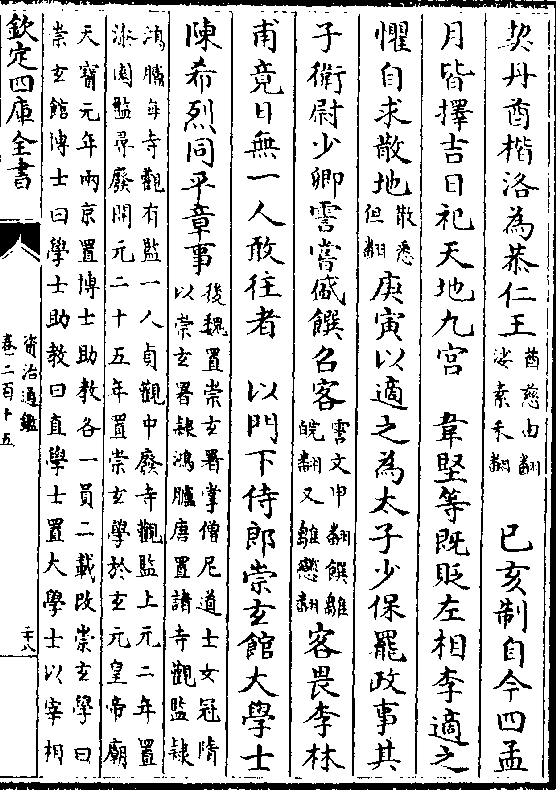 契丹酋楷洛為恭仁王酋慈由翻娑素禾翻 己亥制自今四孟
月皆擇吉日祀天地九宫 韋堅等既貶左相李適之
懼自求散地散悉但翻庚寅以適之為太子少保罷政事其
子衛尉少卿霅嘗盛饌召客霅文甲翻饌雛皖翻又雛戀翻客畏李林
甫竟日無一人敢往者 以門下侍郎崇玄館大學士
陳希烈同平章事後魏置崇玄署掌僧尼道士女冠隋以崇玄署隷鴻臚唐置諸寺觀監隷
鴻臚每寺觀有監一人貞觀中廢寺觀監上元二年置漆園監尋廢開元二十五年置崇玄學於玄元皇帝廟
天寶元年兩京置博士助教各一員二載改崇玄學曰崇玄館博士曰學士助教曰直學士置大學士以宰相
欽定四庫全書
資治通鑑
卷二百十五
二十八